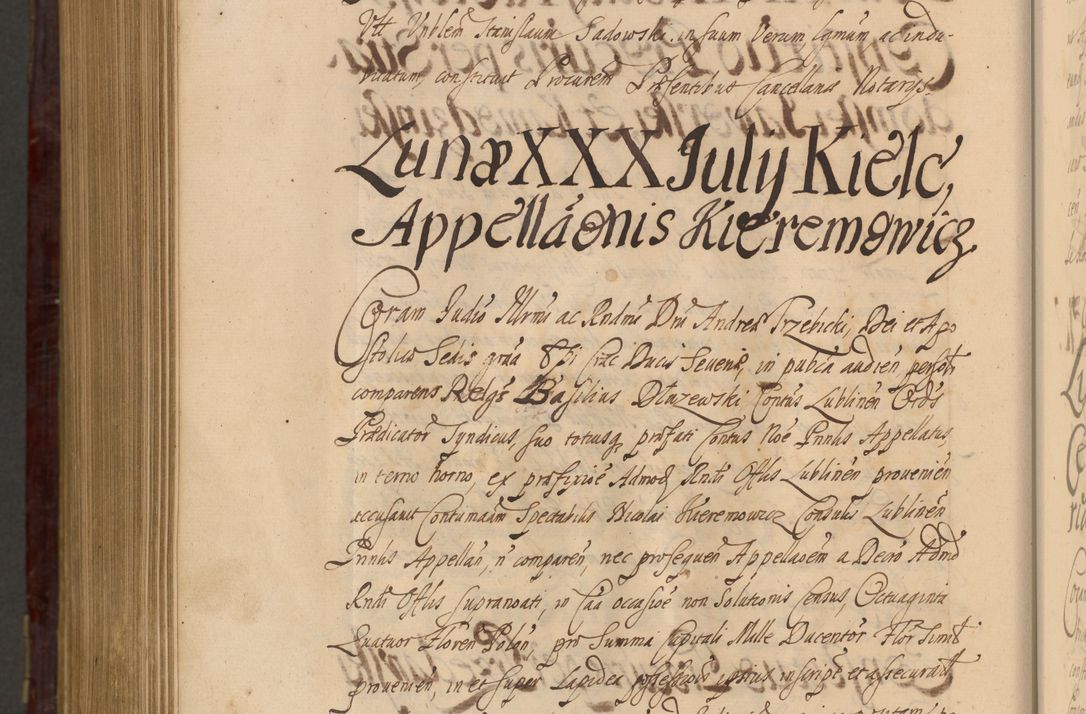 Utt Vnblem Stanislaum Sadowski in suum Verum, lgmum ac indu-
vitatum, constituit Procurem Presentibus Cancellariæ Notarijs
Lunæ XXX July Kielc,
Appellaõnis Kieremowicz
Coram Judio Illrmi ac Rndmi Dni Andreæ Trzebicki, Dei et Apo
stolicæ Sedis grãa Epi Crac Ducis Severiæ, in publca audien personlr
comparens Relgs Basilius Dłuzewski Contus Lublinen Ordis
Prædicator Syndicus, suo totiusq prefati Contus Noe Prnlis Appellatus,
in termo horno, ex præfixioe Admod Rndi Offlis Lublinen provenien
accusavit Contumaam Spectabilis Nicolai Kieremowicz Consulis Lublinen
Prnlis Appellan, n comparen, nec prosequen Appellaoem a Decro Admd
Rndi Offlis supranoati, in caa occasioe non Solutionis Census, Octuaginta
Quatuor Floren Polon, pro Summa Capitali Mille Ducentor Flor simlr
provenien, in et super Lapidea possessions ipsius inscript et assecurat